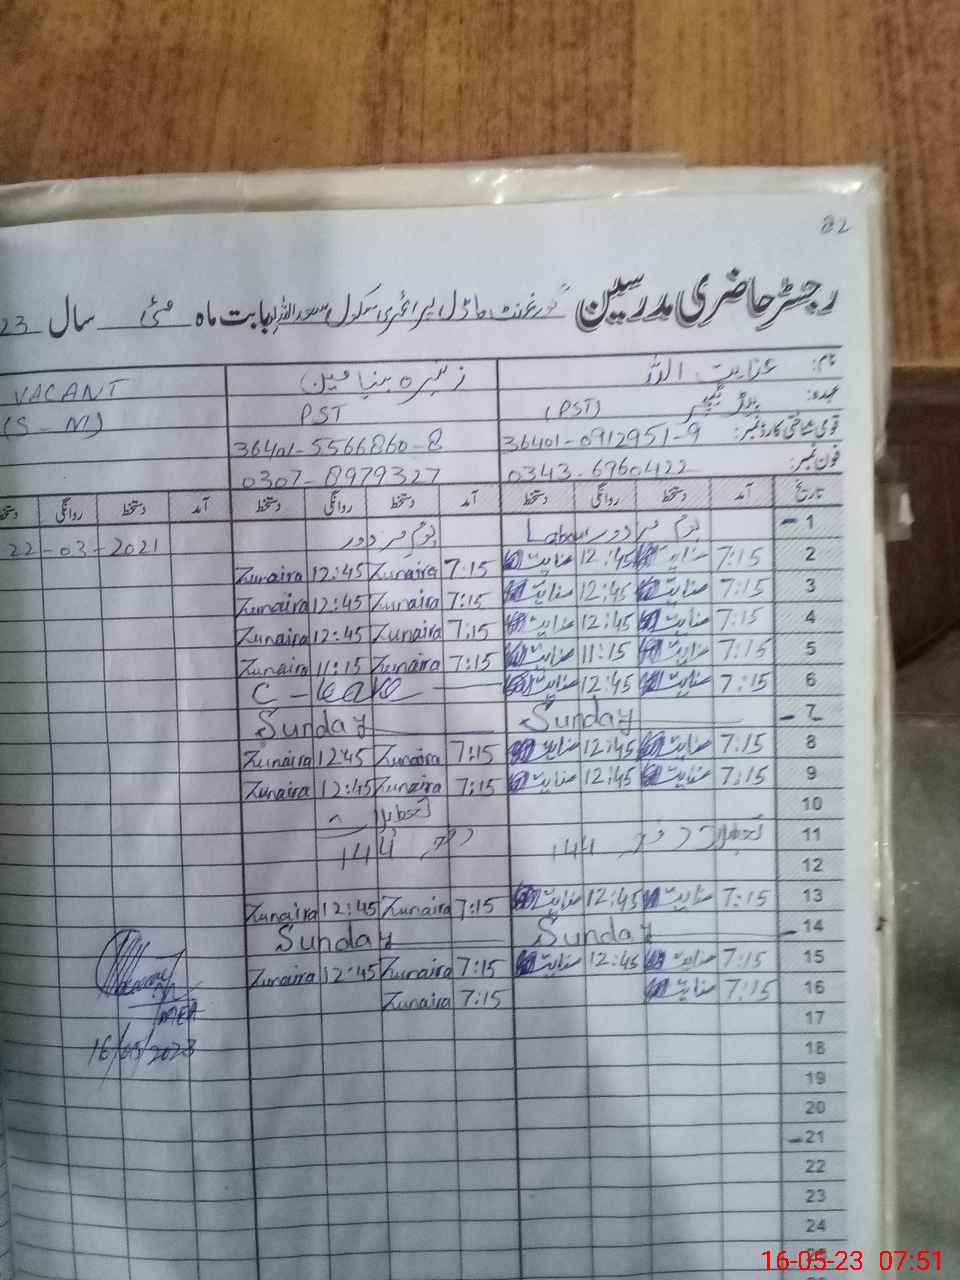 82
رجسٹر حاضری مدرسین گورنمنٹ ماڈل پرائمری سکول سعداللہ بابت ماہ مئی سال 23
نام: عنایت اللہ زنیرہ بنیامین VACANT
عہدہ: ہیڈ ٹیچر (PST) PST (S-M)
قومی شناختی کارڈ نمبر: 36401-0912951-9 36401-5566860-8
فون نمبر: 0343-6960422 0307-8979327
تاریخ آمد دستخط روانگی دستخط آمد دستخط روانگی دستخط آمد دستخط روانگی دستخط
1 یوم مزدور Labour یوم مزدور 22-03-2021
2 7:15 عنایت 12:45 عنایت 7:15 Zunaira 12:45 Zunaira
3 7:15 عنایت 12:45 عنایت 7:15 Zunaira 12:45 Zunaira
4 7:15 عنایت 12:45 عنایت 7:15 Zunaira 12:45 Zunaira
5 7:15 عنایت 11:15 عنایت 7:15 Zunaira 11:15 Zunaira
6 7:15 عنایت 12:45 عنایت C-Leave
7 Sunday Sunday
8 7:15 عنایت 12:45 عنایت 7:15 Zunaira 12:45 Zunaira
9 7:15 عنایت 12:45 عنایت 7:15 Zunaira 12:45 Zunaira
10 تعطیلات
11 تعطیلات دفعہ 144 دفعہ 144
12
13 7:15 عنایت 12:45 عنایت 7:15 Zunaira 12:45 Zunaira
14 Sunday Sunday
15 7:15 عنایت 12:45 عنایت 7:15 Zunaira 12:45 Zunaira
16 7:15 عنایت 7:15 Zunaira
MEA
17
16/05/2023
18
19
20
21
22
23
24
25
16-05-23 07:51